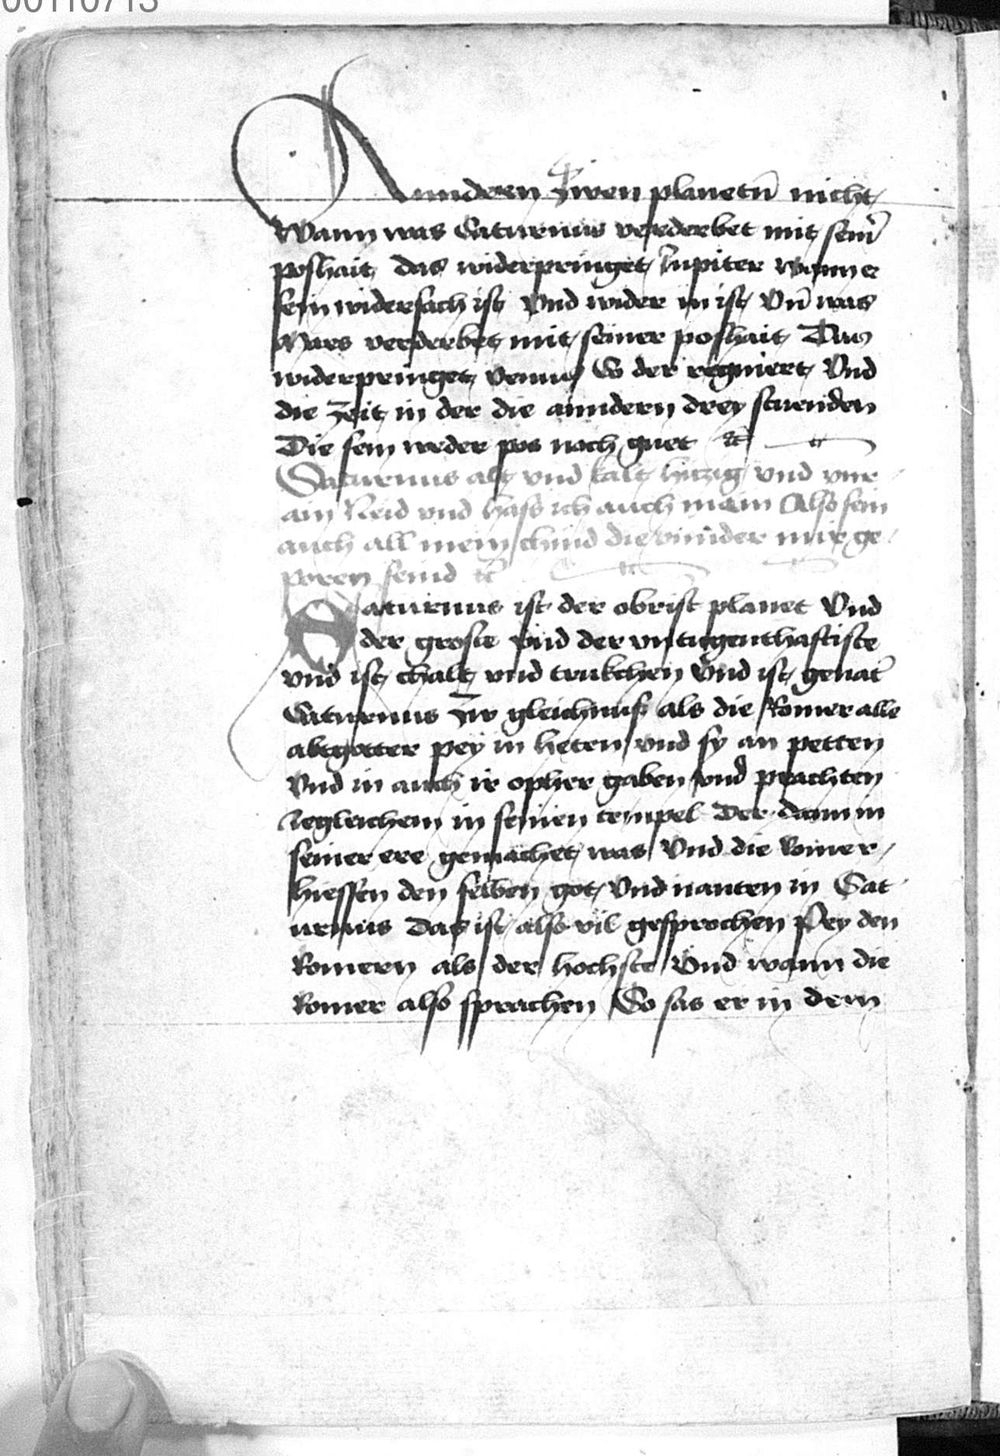 00110713
Anndern zwen planetn̄ nicht
Wann was Saturnus verderbet mit sein̄
poshait das widerpringet Jupiter wann er
sein widersach ist Vnd wider in ist Vn̄ was
Mars verderbet mit seiner poshait Das
widerpringet venus So der regniert Vnd
die Zeit in der die anndern drey stuenden
Die sein weder pos noch guet etc̄
Saturnus alt vnd kalt hitzig vnd vnr
ain Neid vnd hass ich auch main Also sein
auch all mein chind die vnnder mir ge
poren seind etc̄
Saturnus ist der obrist planet Vnd
der groste vnd der vntugenthaftiste
vnd ist chalt vnd trukchen Vnd ist genāt
Saturnus Zw gleichnuss als die Romer alle
abtgotter pey in heten vnd sy an petten
Vnd in auch ir opher gaben vnd prachten
Jegleichem in seinen tempel Der dann in
seiner ere gemachet was Vnd die Romer
hiessen den selben got Vnd nanten in Sat
urnus Das ist also vil gesprochen Pey den
Romern als der hochste Vnd wann die
Romer also sprachen So sas er in dem